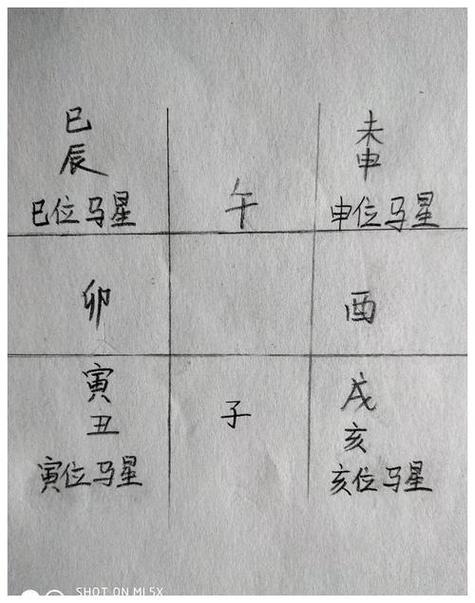 巳
辰
巳位马星
午
未
申
申位马星
卯
酉
寅
丑
寅位马星
子
戌
亥
亥位马星
SHOT ON MI 5X